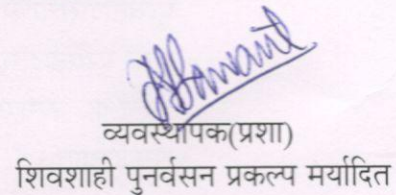 व्यवस्थापक(प्रशा)
शिवशाही पुनर्वसन प्रकल्प मर्यादित